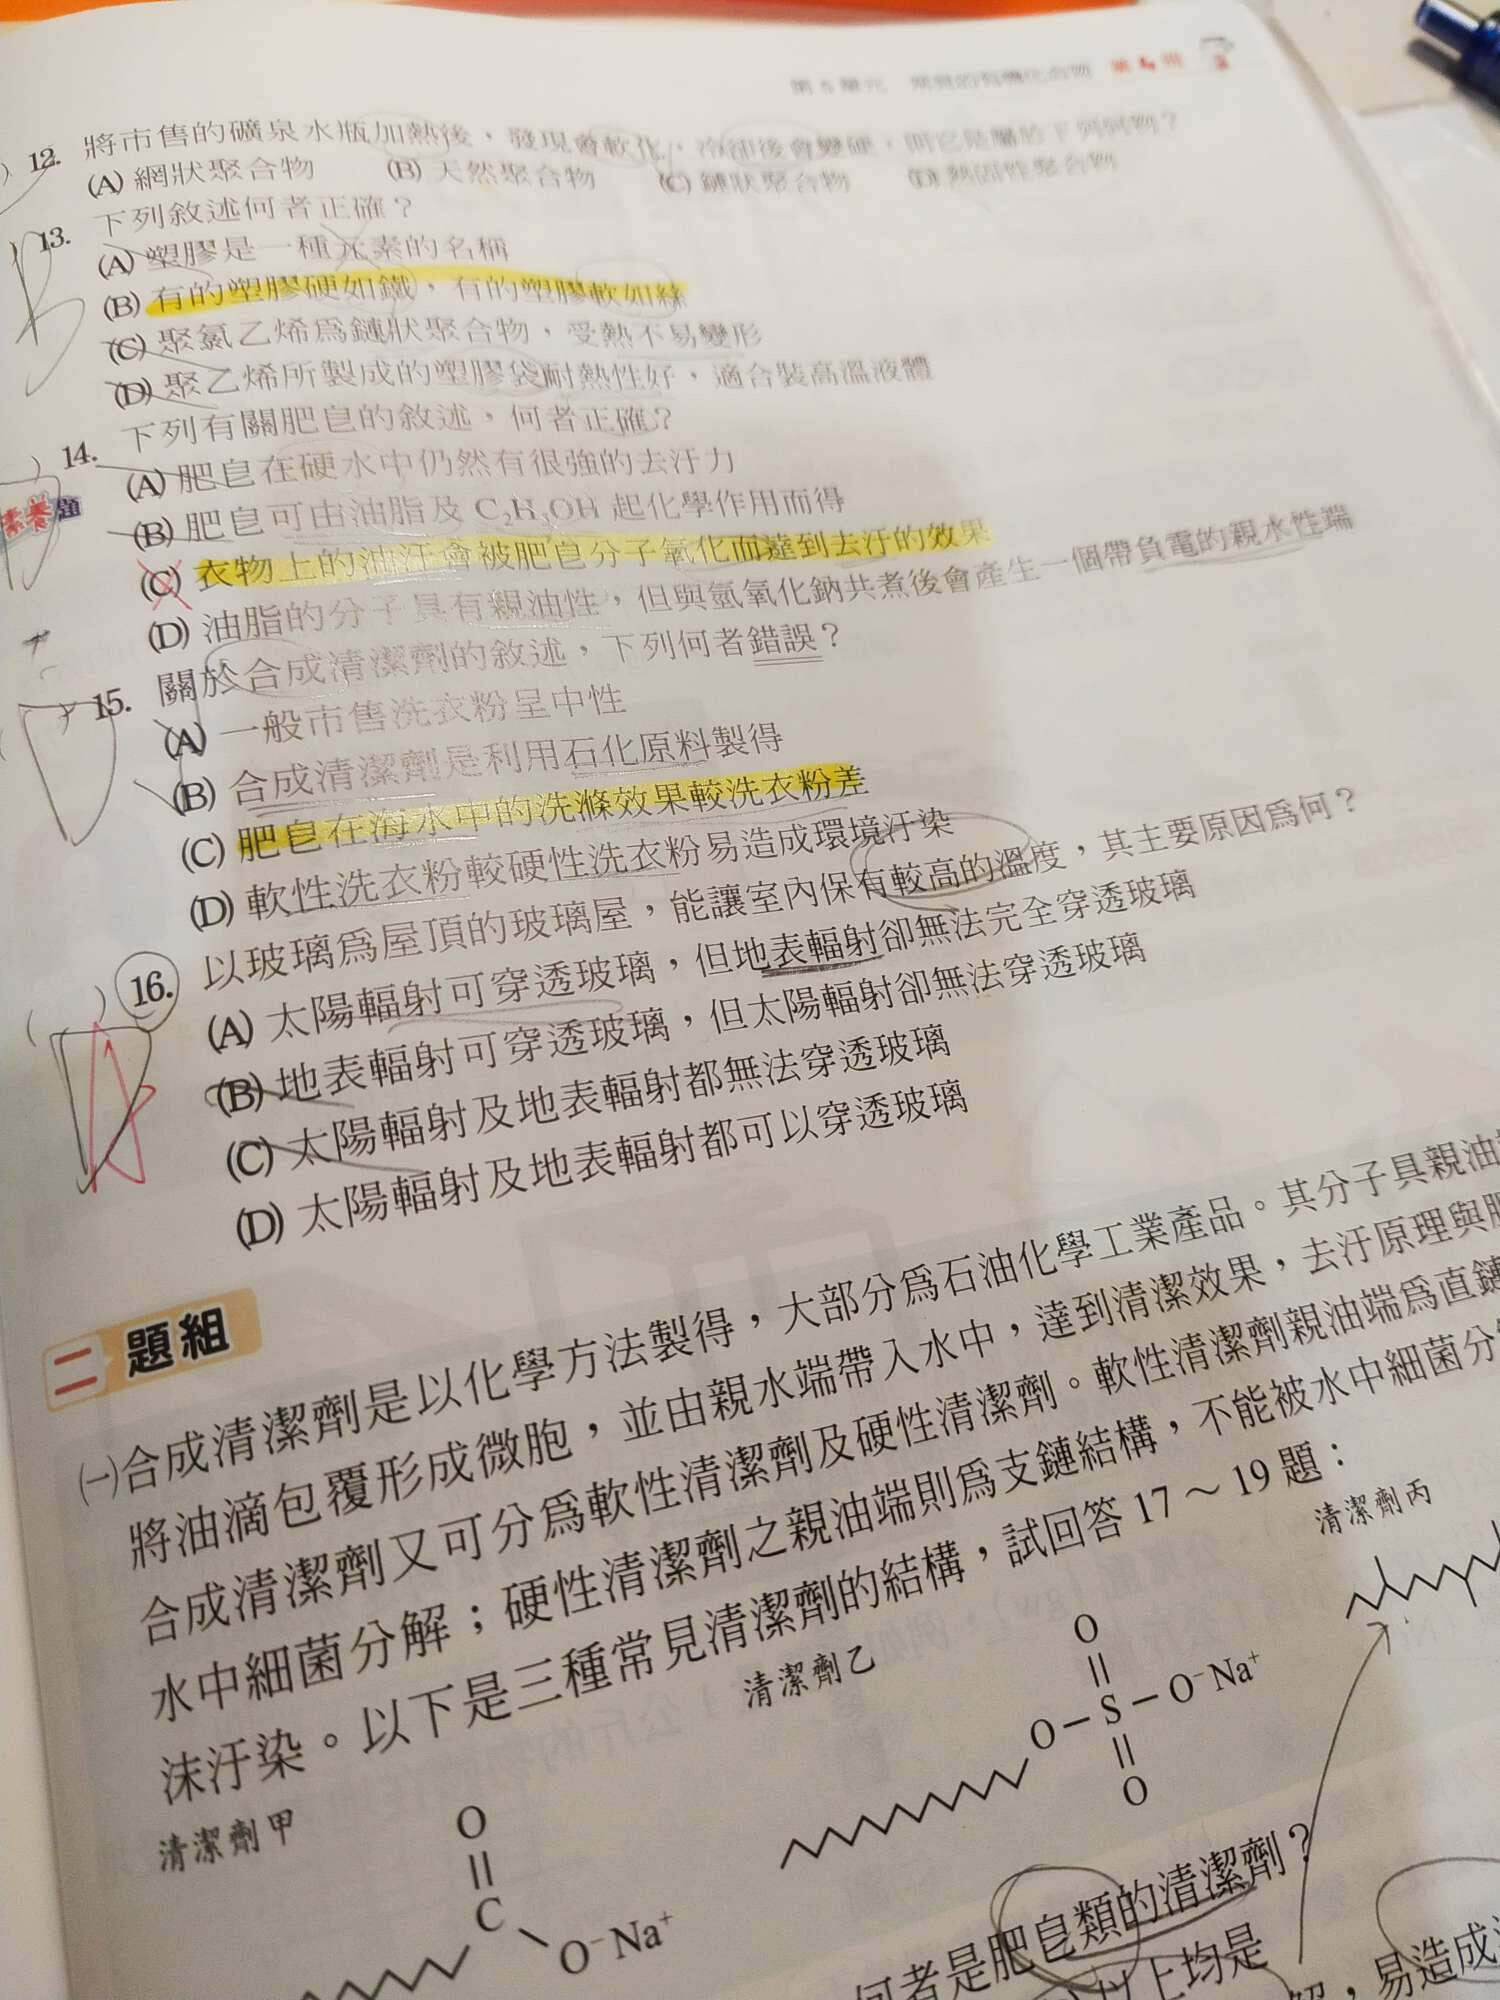 第5單元 常見的有機化合物 第4冊
12. 將市售的礦泉水瓶加熱後，發現會軟化，冷卻後會變硬，則它是屬於下列何物？
(A) 網狀聚合物 (B) 天然聚合物 (C) 鏈狀聚合物 (D) 熱固性聚合物
13. 下列敘述何者正確？
(A) 塑膠是一種元素的名稱
(B) 有的塑膠硬如鐵，有的塑膠軟如絲
(C) 聚氯乙烯為鏈狀聚合物，受熱不易變形
(D) 聚乙烯所製成的塑膠袋耐熱性好，適合裝高溫液體
14. 下列有關肥皂的敘述，何者正確？
素養題
(A) 肥皂在硬水中仍然有很強的去汙力
(B) 肥皂可由油脂及 C₂H₅OH 起化學作用而得
(C) 衣物上的油汙會被肥皂分子氧化而達到去汙的效果
(D) 油脂的分子具有親油性，但與氫氧化鈉共煮後會產生一個帶負電的親水性端
15. 關於合成清潔劑的敘述，下列何者錯誤？
(A) 一般市售洗衣粉呈中性
(B) 合成清潔劑是利用石化原料製得
(C) 肥皂在海水中的洗滌效果較洗衣粉差
(D) 軟性洗衣粉較硬性洗衣粉易造成環境汙染
16. 以玻璃為屋頂的玻璃屋，能讓室內保有較高的溫度，其主要原因為何？
(A) 太陽輻射可穿透玻璃，但地表輻射卻無法完全穿透玻璃
(B) 地表輻射可穿透玻璃，但太陽輻射卻無法穿透玻璃
(C) 太陽輻射及地表輻射都無法穿透玻璃
(D) 太陽輻射及地表輻射都可以穿透玻璃
B
D
D
D
A
二 題組
(一)合成清潔劑是以化學方法製得，大部分為石油化學工業產品。其分子具親油
將油滴包覆形成微胞，並由親水端帶入水中，達到清潔效果，去汙原理與肥
合成清潔劑又可分為軟性清潔劑及硬性清潔劑。軟性清潔劑親油端為直鏈
水中細菌分解；硬性清潔劑之親油端則為支鏈結構，不能被水中細菌分
沫汙染。以下是三種常見清潔劑的結構，試回答 17～19 題：
清潔劑甲
O
C
O⁻Na⁺
清潔劑乙
O
O S O⁻Na⁺
O
清潔劑丙
何者是肥皂類的清潔劑？
以上均是
解，易造成